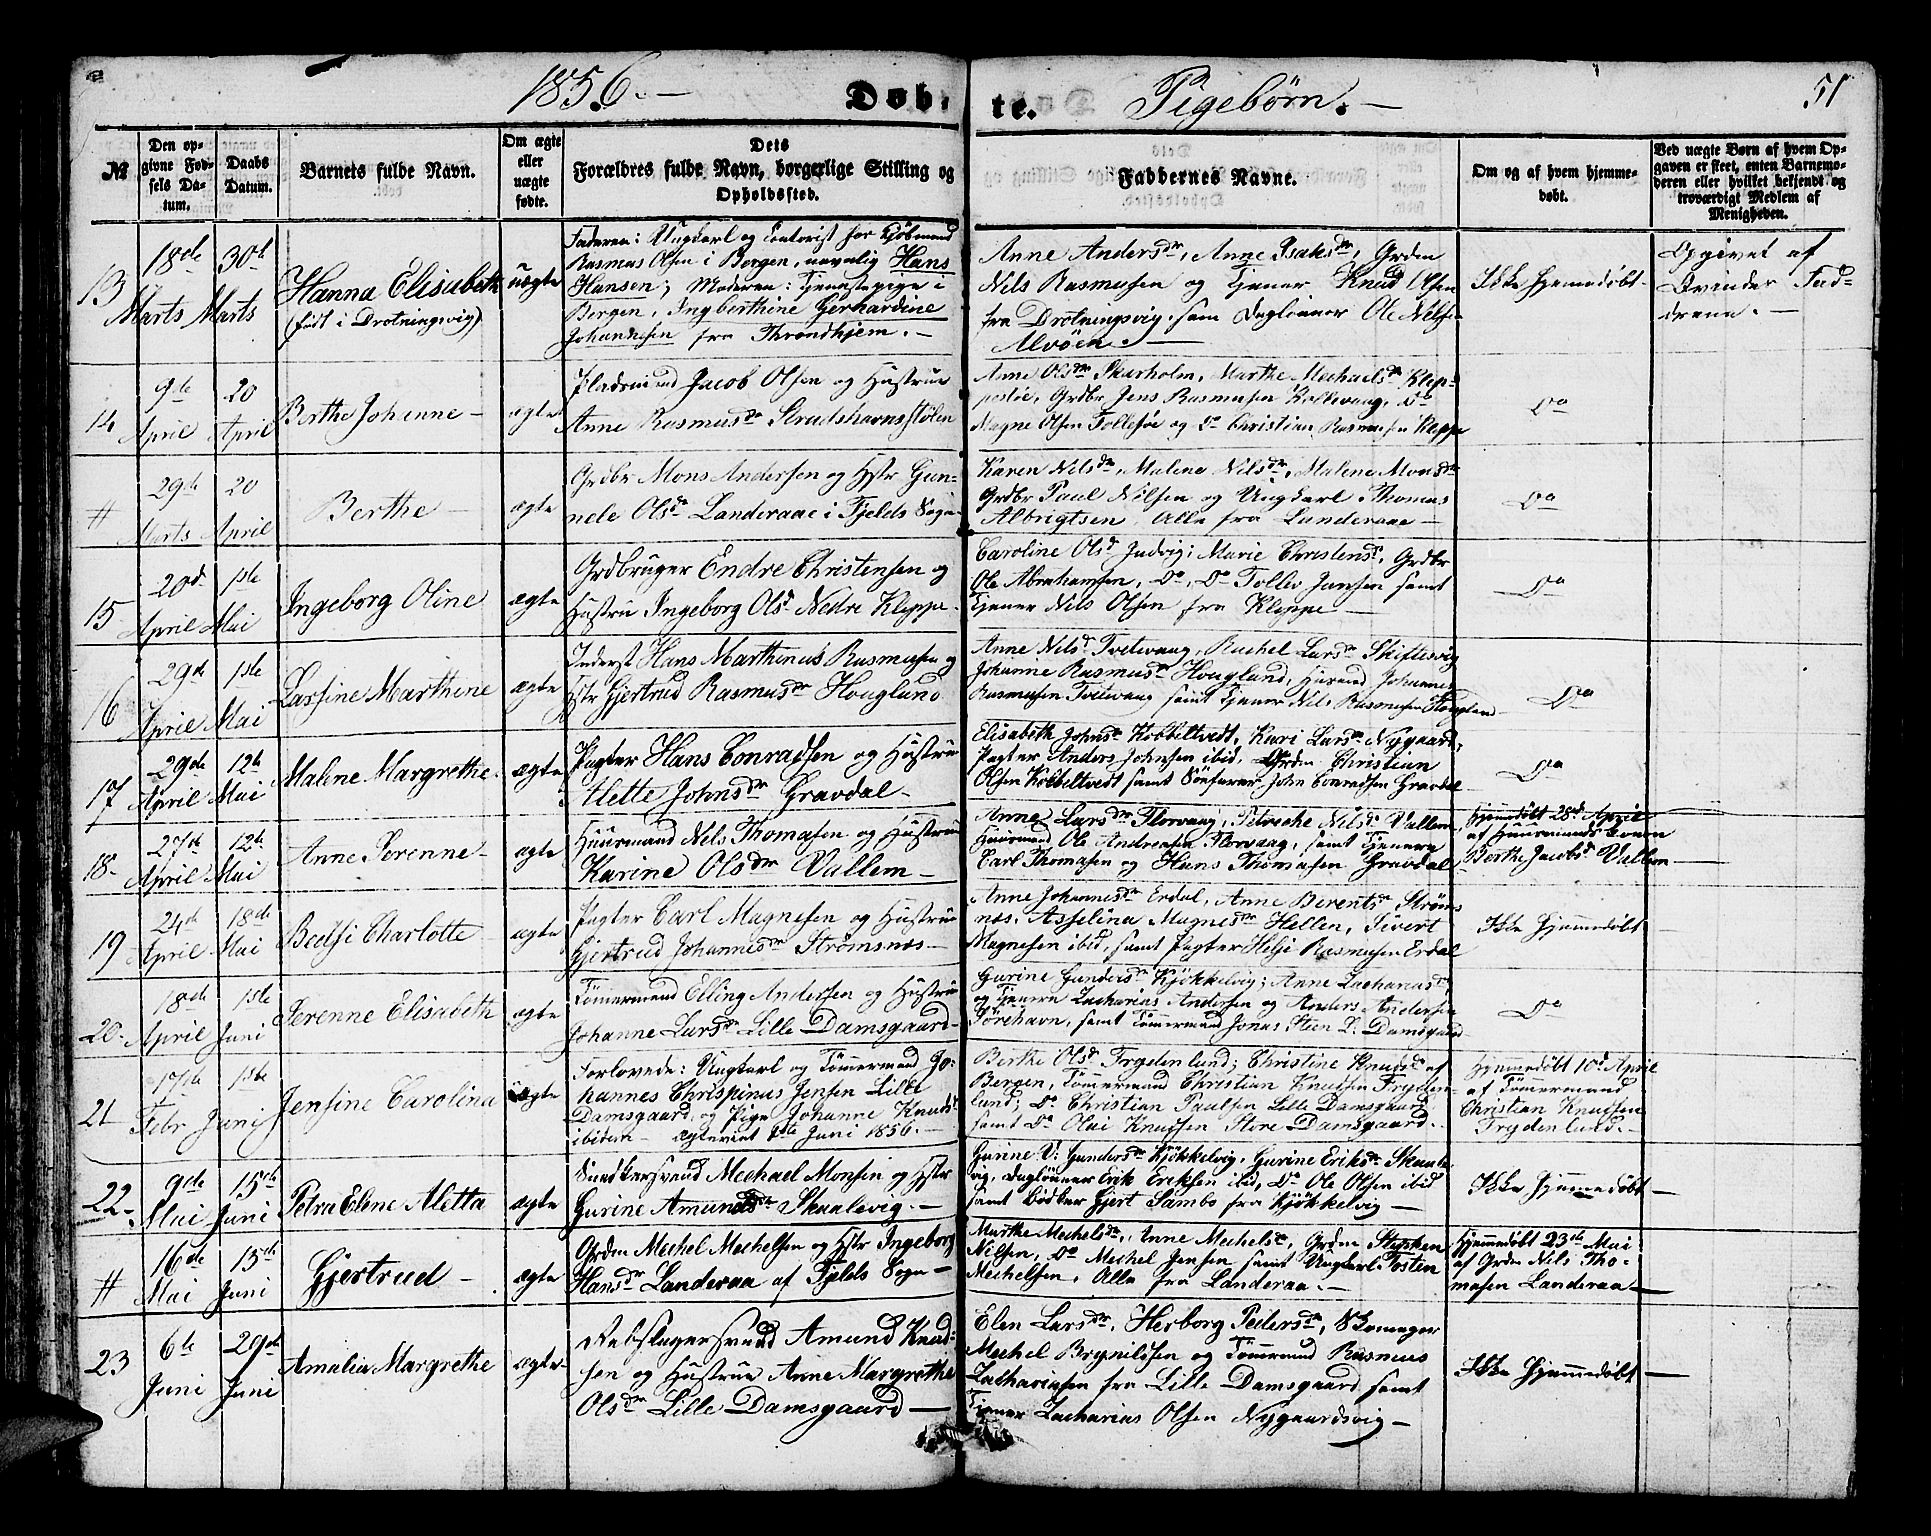 1856.— Døb- te. Pigebørn.— 51
№
Den opgivne Fødsels Datum.
Daabs Datum.
Barnets fulde Navn.
Om ægte eller uægte fødte.
Dets Forældres fulde Navn, borgerlige Stilling og Opholdssted.
Faddernes Navne.
Om og af hvem hjemmedøbt.
Ved uægte Børn af hvem Opgaven er skeet, enten Barnemoderen eller hvilket bekjendt og troværdigt Medlem af Menigheden.
13 18de Marts 30te Marts
Hanna Elisabeth
(født i Drotningsvig)
uægte
Faderen: Ungkarl og Contorist hos Kjøbmand
Rasmus Olsen i Bergen, navnlig Hans
Hansen; Moderen: Tjenestepige i
Bergen, Ingberthine Gerhardine
Johannesen fra Throndhjem.—
Anne Andersdr, Anne Isaksdr, Grdm
Nils Rasmussen og Tjener Knud Olsen
fra Drotningsvig, sam Daglønner Ole Nilsen
Alvøen.—
Ikke Hjemmedøbt.
Opgivet af
Qvinder Fad-
drene.—
14 9de April 20 April
Berthe Johanne—
ægte
Pladsmand Jacob Olsen og Hustrue
Anne Rasmusdr Strudshavnsstølen
Anne Olsdr Skarholm, Marthe Mechaelsdr Klep-
pesøe, Grdbr Jens Rasmusen Kolltevaag, Do
Magne Olsen Follesøe og Do Christian Rasmusen Kleppe
Do
# 29de Marts 20 April
Berthe—
ægte
Grdbr Mons Andersen og Hstr Gun-
nele Olsdr Landeraae i Fjelds Sogn
Karen Nilsdr, Malene Nilsdr, Malene Monsdr
Grdbr Paul Nilsen og Ungkarl Thomas
Albrigtsen, Alle fra Landeraae—
Do
15 20de April 1ste Mai
Ingeborg Oline
ægte
Grdbruger Endre Christensen og
Hustru Ingeborg Olsd Nedre Kleppe.
Caroline Olsd Judvig; Marie Christensd, Grdbr
Ole Abrahamsen, Do, Do Tollev Jansen samt
Tjener Nils Olsen fra Kleppe—
Do
16 29de April 1ste Mai
Larsine Marthine
ægte
Inderst Hans Marthinus Rasmusen og
Hstr Gjertrud Rasmusdr Hougland
Anne Nilsd Tveitevaag, Rachel Larsdr Skiftesvig
Johanne Rasmusdr Hougland, Huusmd Johannes
Rasmusen Tveitevaag samt Tjener Nils Rasmusen Hougland—
Do
17 29de April 12te Mai
Malene Margrethe.
ægte
Pagter Hans Conradsen og Hustrue
Alette Johnsdr Gravdal—
Elisabeth Johnsdr Kobbeltvedt, Kari Larsdr Nygaard,
Pagter Anders Johnsen ibid, Grdm Christian
Olsen Kobbeltvedt samt Søefarer John Conradsen Gravdal—
Do
18— 27de April 12te Mai
Anne Serenne—
ægte
Huusmand Nils Thomasen og Hustrue
Karine Olsdr Vallem—
Anne Larsdr Florvaag, Petreche Nilsd Vallem,
Huusmand Ole Andreasen Florvaag, samt Tjenere
Carl Thomasen og Hans Thomasen Gravdal
Hjemmedøbt 28de April
af Huusmands Konen
Berthe Jacobsd Vallem—
19 24de April 18de Mai
Beetsi Charlotte
ægte
Pagter Carl Magnesen og Hustrue
Gjertrud Johannesdr Strømsnes—
Anne Johannesdr Erdal, Anne Berentsdr Strøms-
nes, Asselina Magnesdr Hellen, Sivert
Magnesen ibid, samt Pagter Helje Rasmusen Erdal
Ikke Hjemmedøbt—
20— 18de April 1ste Juni
Serenne Elisabeth
ægte
Tømermand Elling Andersen og Hustrue
Johanne Larsdr Lille Damsgaard—
Gurine Gundersdr Kjøkkelvig; Anne Zachariasdr,
og Tjenere Zacharias Andersen og Anders Andersen
Sørehavn, samt Tømmermand Jonas Steen L. Damsgaard
Do
21 17de Febr 1ste Juni
Jensine Carolina
uægte
Forlovede: Ungkarl og Tømmermand Jo-
hannes Chrispinus Jensen Lille
Damsgaard og Pige Johanne Knudsd
ibidem— Ægteviet 1ste Juni 1856.—
Berthe Olsd Frydenlund; Christine Knudsd af
Bergen, Tømmermand Christian Knudsen Fryden-
lund; Do Christian Paulsen Lille Damsgaard
samt Do Olai Knudsen Store Damsgaard.—
Hjemmedøbt 10d April
af Tømmermand
Christian Knudsen
Frydenlund.—
22— 9de Mai 15de Juni
Petra Elene Aletta
ægte
Sundkarsvend Mechael Monsen og Hstr
Gurine Amundsdr Skaalevig.—
Gurine V: Gundersdr Kjøkkelvig, Gurine Eriksdr Skaale-
vig, Daglønner Erik Eriksen ibid, Do Ole Olsen ibid
samt Bødker Gjert Sambo fra Kjøkkelvig—
Ikke Hjemmedøbt—
# 16de Mai 15de Juni
Gjertrud—
ægte
Grdm Mechel Mechelsen og Hstr Ingeborg
Hansdr Landeraa af Fjelds Sogn—
Marthe Mechelsdr, Anne Mechelsdr, Grdm Stephen
Nilsen, Do Mechel Jensen samt Ungkarl Tosten
Mechelsen, Alle fra Landeraa.—
Hjemmedøbt 23de Mai
af Grdm Nils Tho-
masen Landeraa—
23 6te Juni 29de Juni
Amalia Margrethe
ægte
Rebslagersvend Amund Knud-
sen og Hustrue Anne Margrethe
Olsdr Lille Damsgaard—
Elen Larsdr, Herborg Pedersdr, Skomager
Mechel Brynildsen og Tømmermd Rasmus
Zachariasen fra Lille Damsgaard samt
Tjener Zacharias Olsen Nygaardsvig—
Ikke Hjemmedøbt—